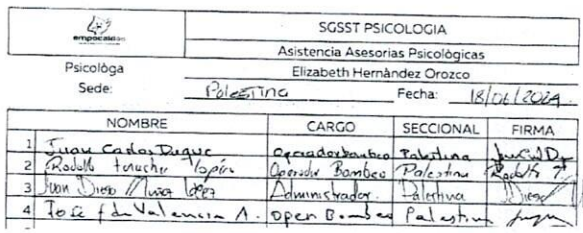 empocaldas
SGSST PSICOLOGIA
Asistencia Asesorias Psicológicas
Psicológa Elizabeth Hernàndez Orozco
Sede: Palestina Fecha: 18/06/2024
NOMBRE CARGO SECCIONAL FIRMA
1 Juan Carlos Duque Operador bombeo Palestina
2 Rodolfo Operador Bombeo Palestina
3 Juan Diego Muñoz López Administrador. Palestina Diego
4 José Valencia A. Open Bombeo Palestina